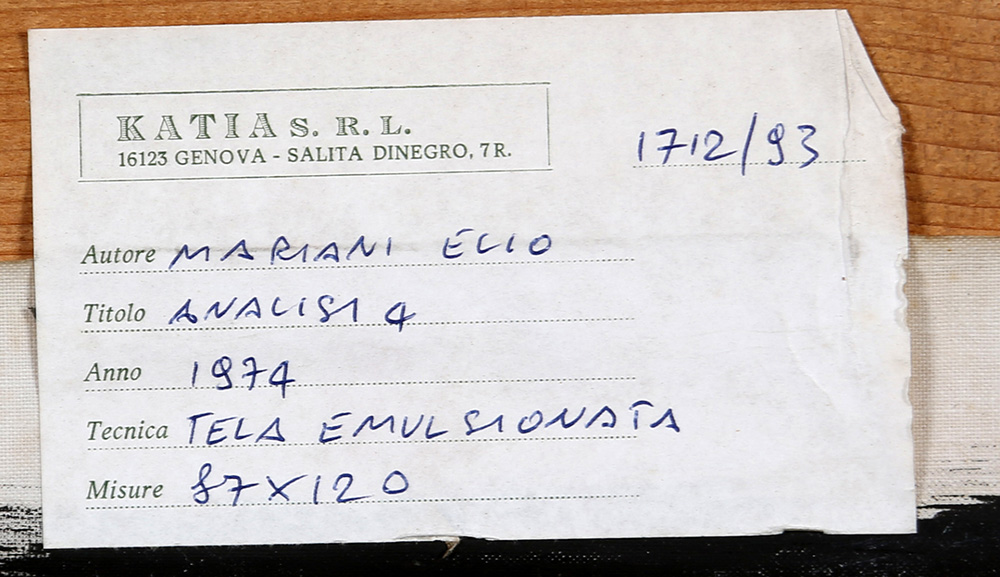 KATIA S. R. L.
16123 GENOVA - SALITA DINEGRO, 7 R.
1712/93
Autore MARIANI ELIO
Titolo ANALISI 4
Anno 1974
Tecnica TELA EMULSIONATA
Misure 87X120